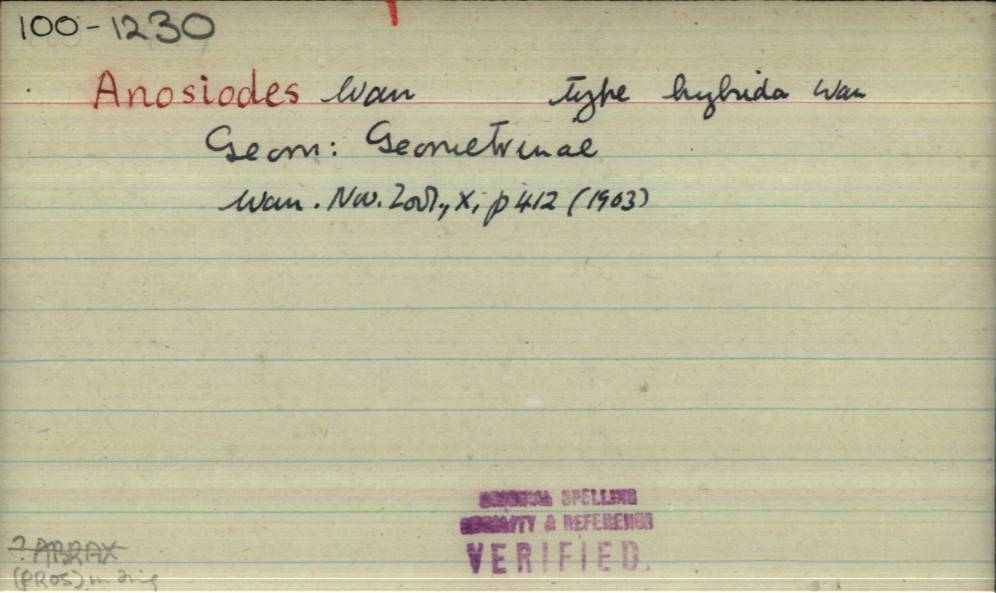 100-1230
Anosiodes Warr type hybrida Warr
Geom: Geometrinae
Warr. Nov. Zool., X, p 412 (1903)
SPELLING
& REFERENCE
VERIFIED.
? ABRAX
(PROS) in